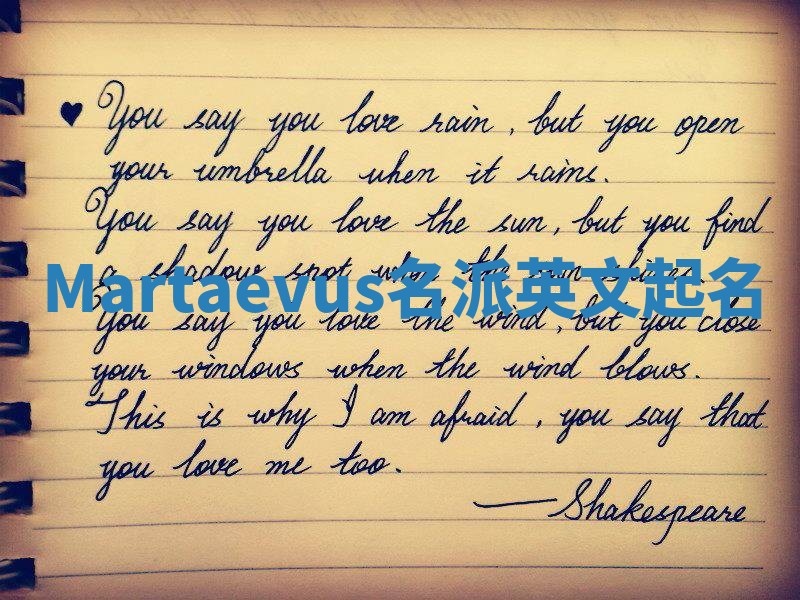 ♥ You say you love rain, but you open
your umbrella when it rains.
You say you love the sun, but you find
a shadow spot when the sun shines.
Martaevus名派英文起名
You say you love the wind, but you close
your windows when the wind blows.
This is why I am afraid, you say that
you love me too.
— Shakespeare